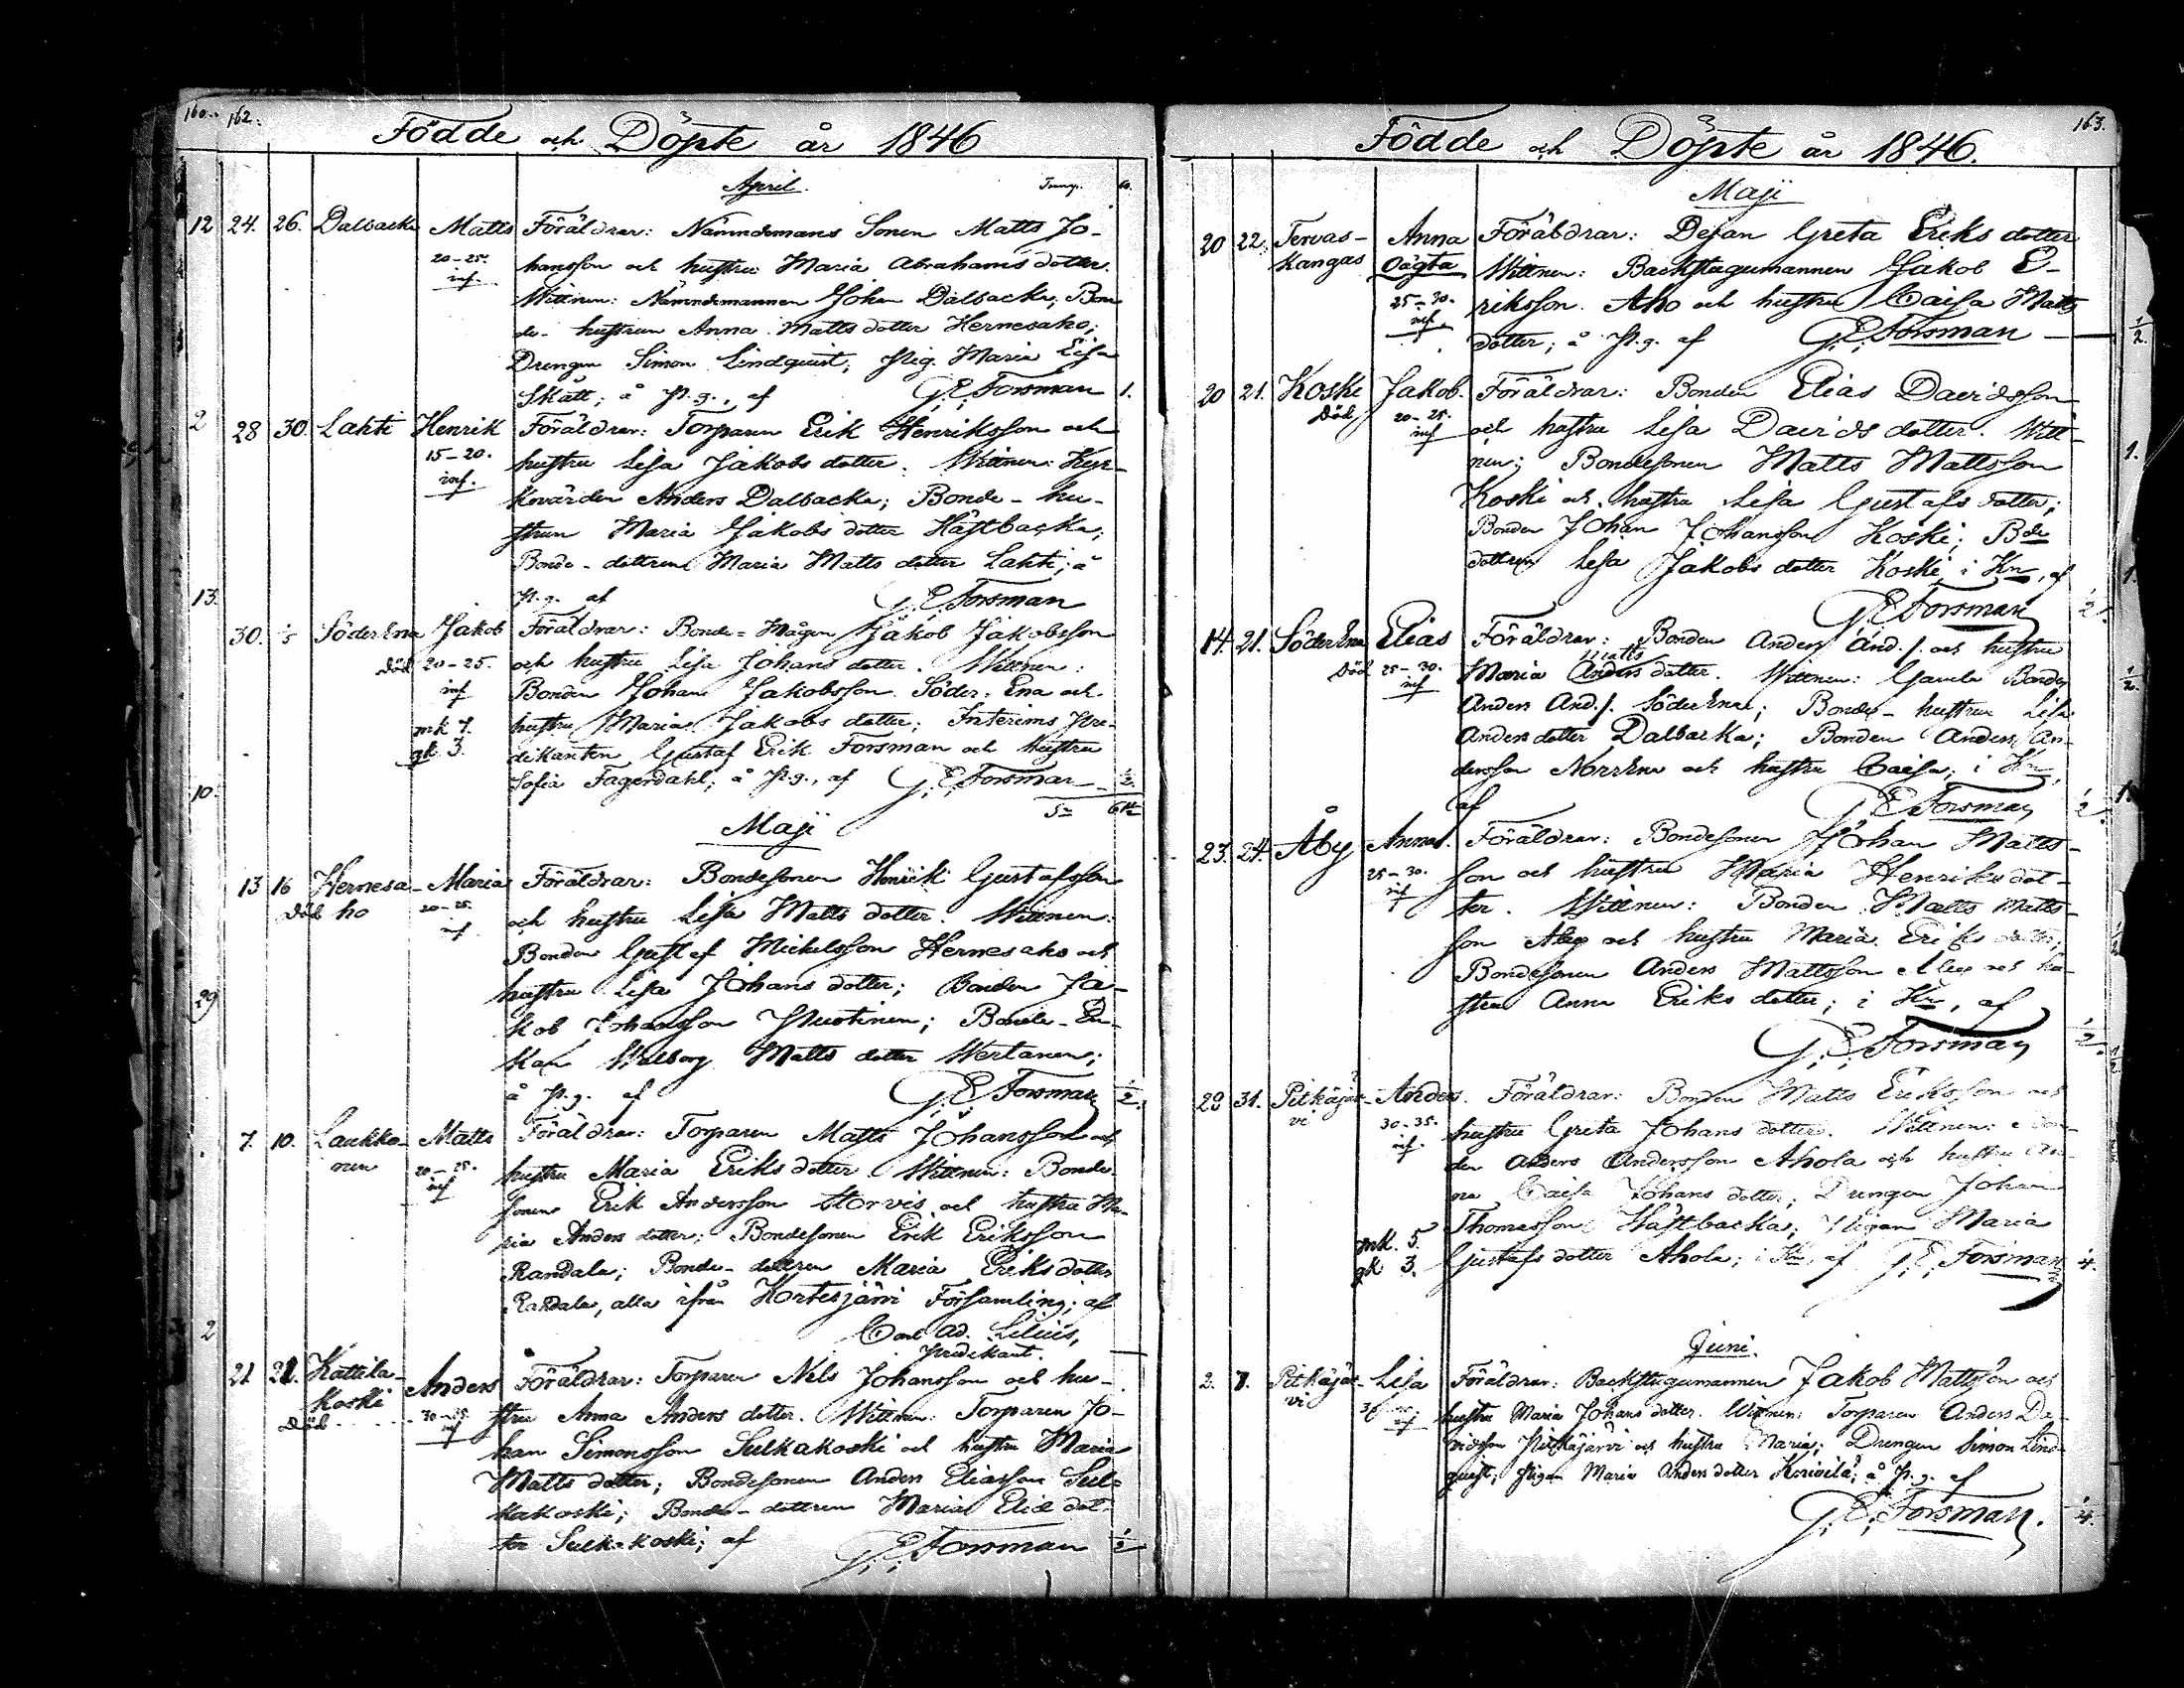 160.. 162.
Födde och Döpte år 1846
April. 
24. 26. Dalbacka Matts Föräldrar: Nämndemans Sonen Matts Jo-
20-25. inf. hansson och hustru Maria Abrahams dotter.
Wittnen: Nämndemannen Johan Dalbacka; Bon-
de-hustrun Anna Matts dotter Hernesaho;
Drengen Simon Lindquist, Pig. Maria Lisa
Skått; å P.g., af G. E. Forsman 1.
28 30. Lahti Henrik Föräldrar: Torparen Erik Henriksson och
15-20. inf. hustru Lisa Jakobs dotter. Wittnen: Kyr-
kovärden Anders Dalbacka; Bonde-hu-
strun Maria Jakobs dotter Hästbacka;
Bonde-dottren Maria Matts dotter Lahti; å
P.g. af G. E. Forsman
30. Söder Ena Jakob Föräldrar: Bonde-Mågen Jakob Jakobsson
död 20-25. och hustru Lisa Johans dotter. Wittnen:
inf Bonden Johan Jakobsson Söder-Ena och
mk 7. hustru Maria Jakobs dotter; Interims Pre-
qk. 3. dikanten Gustaf Erik Forsman och hustru
Sofia Fagerdahl; å P.g., af G. E. Forsman 1/2.
Maji
13 16 Hernesa- Maria Föräldrar: Bondesonen Henrik Gustafsson
död ho 20-25. inf. och hustru Lisa Matts dotter. Wittnen:
Bonden Gustaf Mickelsson Hernesaho och
hustru Lisa Johans dotter; Bonden Ja-
kob Johansson Huotinen; Bonde-En-
kan Walborg Matts dotter Wertanen;
å P.g. af G. E. Forsman 1/2.
7. 10. Laukko- Matts Föräldrar: Torparen Matts Johansson och
nen 20-25. inf hustru Maria Eriks dotter Wittnen: Bonde-
sonen Erik Andersson Storvis och hustru Ma-
ria Anders dotter; Bondesonen Erik Eriksson
Randala; Bonde-dottren Maria Eriks dotter
Randala, alla ifrån Kortesjärvi Församling; af
Carl Ad. Lilius,
Predikant.
21 Kattila- Anders Föräldrar: Torparen Nils Johansson och hu-
koski
Död inf stru Anna Anders dotter. Wittnen: Torparen Jo-
han Simonsson Sulkakoski och hustru Maria
Matts dotter; Bondesonen Anders Eliasson Sul-
kakoski; Bonde-dottren Maria Elie dot-
ter Sulkakoski; af G. E. Forsman 1/2
163.
Födde och Döpte år 1846.
Maji
20 22. Tervas- Anna Föräldrar: Dejan Greta Eriks dotter
kangas Oägta Wittnen: Backstugumannen Jakob E-
25-30. inf. riksson Aho och hustru Caisa Matts
dotter; å P.g. af G. E. Forsman 1/2.
20 21. Koski Jakob. Föräldrar: Bonden Elias Davidsson
Död 20-25. inf och hustru Lisa Davids dotter. Witt-
nen; Bondesonen Matts Mattsson
Koski och hustru Lisa Gustafs dotter;
Bonden Johan Johansson Koski; Bde
dottren Lisa Jakobs dotter Koski i Kn, af
G. E. Forsman 1/2.
14. 21. Söder Ena Elias Föräldrar: Bonden Anders And.s. och hustru
Matts
Död 25-30. inf Maria Anders dotter. Wittnen: Gamla Bonden
Anders And.s. Söder Ena; Bonde-hustrun Lisa
Anders dotter Dalbacka; Bonden Anders An-
dersson Norr Ena och hustru Caisa; i Kn,
af G. E. Forsman 1/2.
23. 24. Åby Anna. Föräldrar: Bondesonen Johan Matts-
25-30. inf son och hustru Maria Henriks dot-
ter. Wittnen: Bonden Matts Matts-
son Åby och hustru Maria Eriks dotter;
Bondesonen Anders Mattsson Åby och hu-
stru Anna Eriks dotter; i Kn, af
G. E. Forsman 1/2.
29 31. Pitkäjär- Anders. Föräldrar: Bonden Matts Eriksson och
vi 30-35. inf. hustru Greta Johans dotter. Wittnen: Bon-
den Anders Andersson Ahola och hustru An-
na Caisa Johans dotter; Drengen Johan
Thomasson Hästbacka; Pigan Maria
mk. 5. qk 3. Gustafs dotter Ahola; i Kn, af G. E. Forsman
Juni.
2. 7. Pitkäjär- Lisa Föräldrar: Backstugumannen Jakob Mattsson och
vi inf hustru Maria Johans dotter. Wittnen: Torparen Anders Da-
vidsson Pitkäjärvi och hustru Maria; Drengen Simon Lind-
quist; Pigan Maria Anders dotter; å P.g. af
G. E. Forsman.